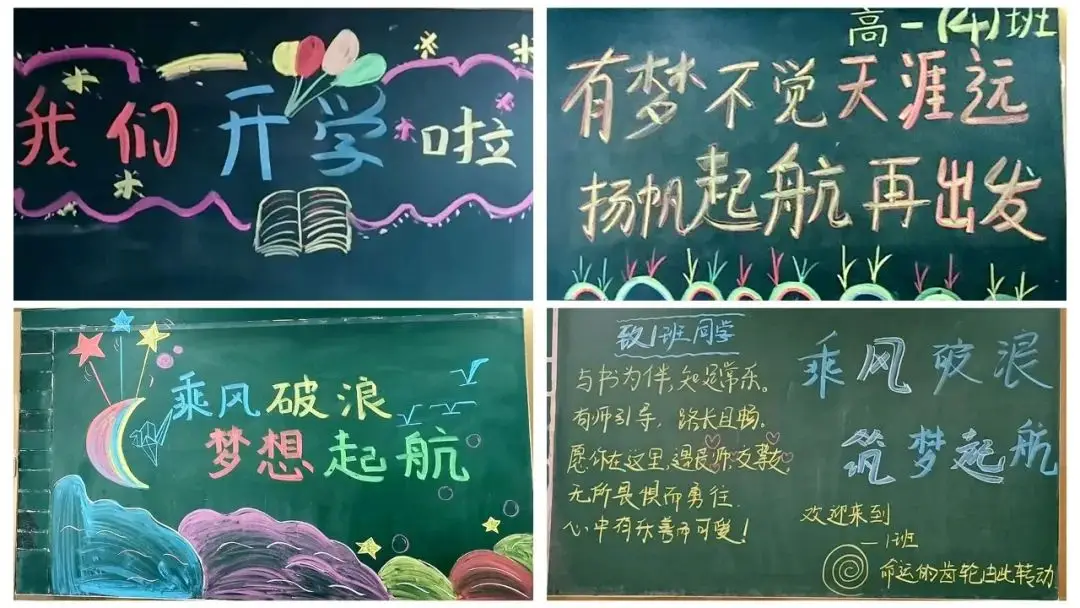 我们开学啦
高一(4)班
有梦不觉天涯远
扬帆起航再出发
乘风破浪
梦想起航
致1班同学
与书为伴,知足常乐。
有师引导,路长且畅。
愿你在这里,遇良师,交挚友
无所畏惧而勇往
心中有乐善而可爱!
乘风破浪
筑梦起航
欢迎来到
一1班
命运的齿轮由此转动